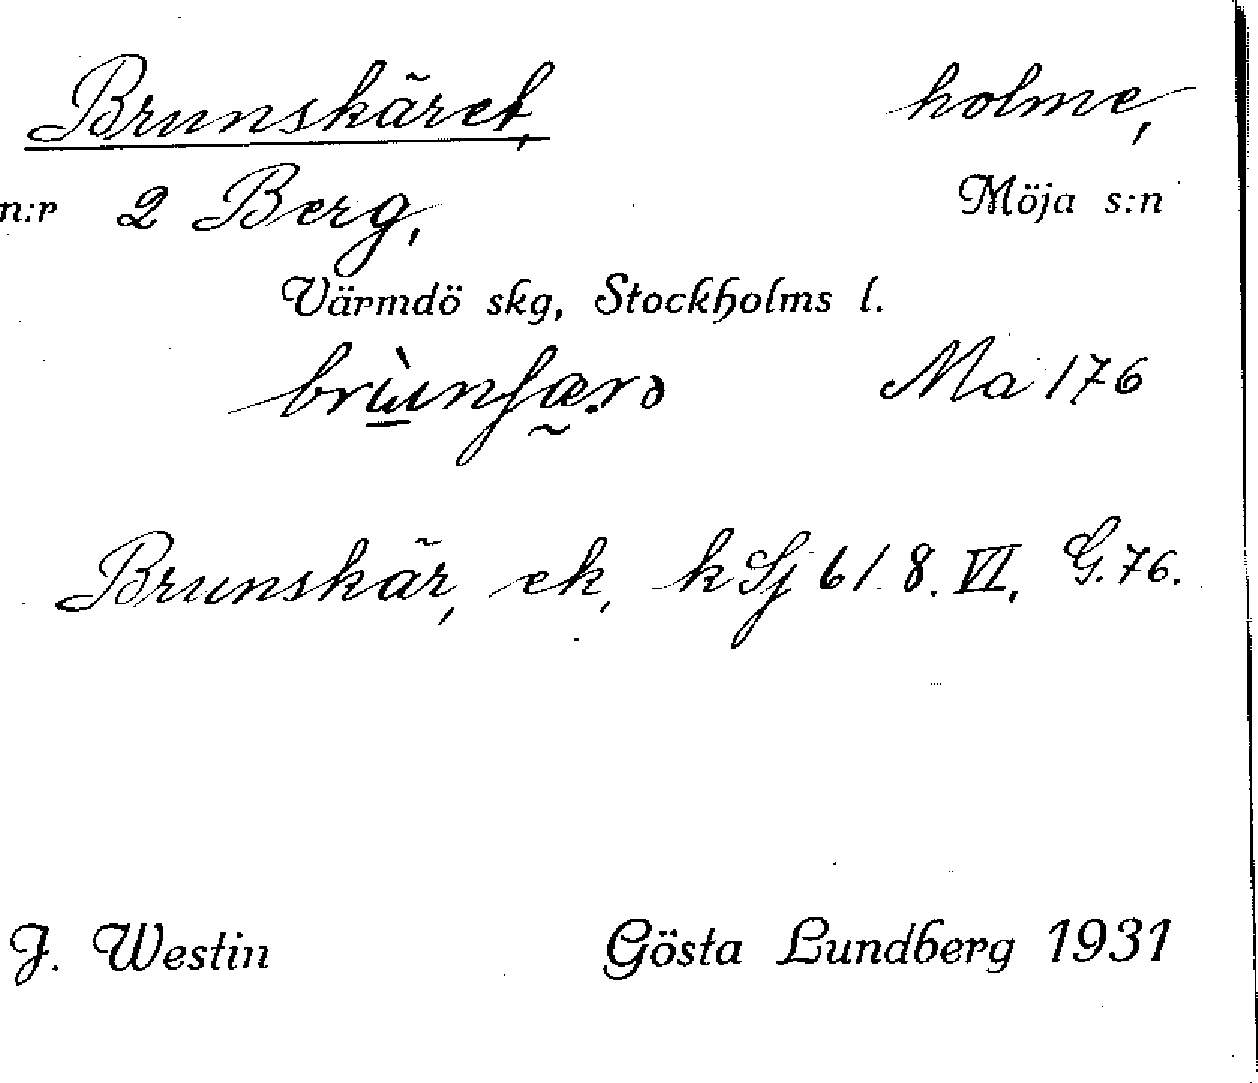 Brunskäret, holme,
n:r 2 Berg, Möja s:n
Värmdö skg, Stockholms l.
Ma 176
Brunskär, ek, k Sj 61 8. VI. G.76.
J. Westin Gösta Lundberg 1931